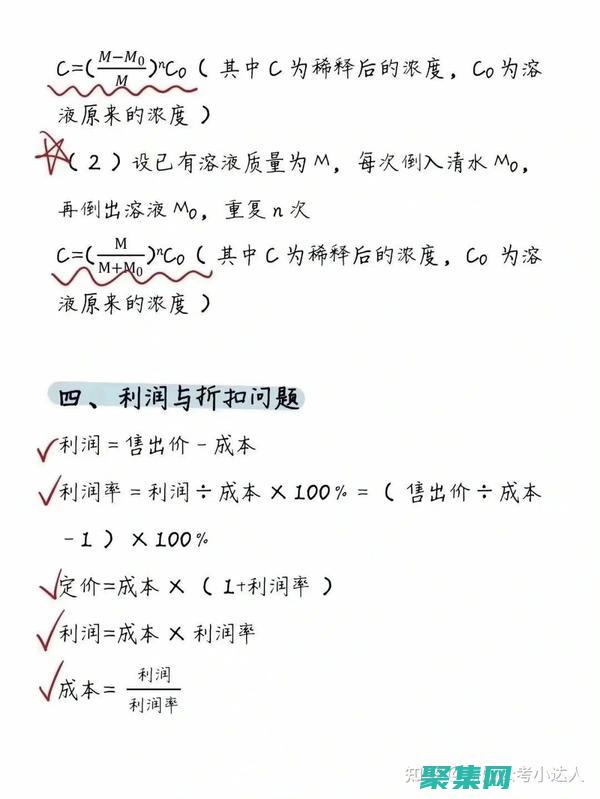 C=(\frac{M-M₀}{M})ⁿC₀ ( 其中C为稀释后的浓度，C₀为溶
液原来的浓度 )
( 2 ) 设已有溶液质量为M，每次倒入清水M₀，
再倒出溶液M₀，重复n次
C=(\frac{M}{M+M₀})ⁿC₀ ( 其中C为稀释后的浓度，C₀ 为溶
液原来的浓度 )
四、利润与折扣问题
利润 = 售出价 - 成本
利润率 = 利润 ÷ 成本 × 100% = ( 售出价 ÷ 成本
-1 ) × 100%
定价=成本 × ( 1+利润率 )
利润=成本 × 利润率
成本= \frac{利润}{利润率}
知 考小达人
聚集网